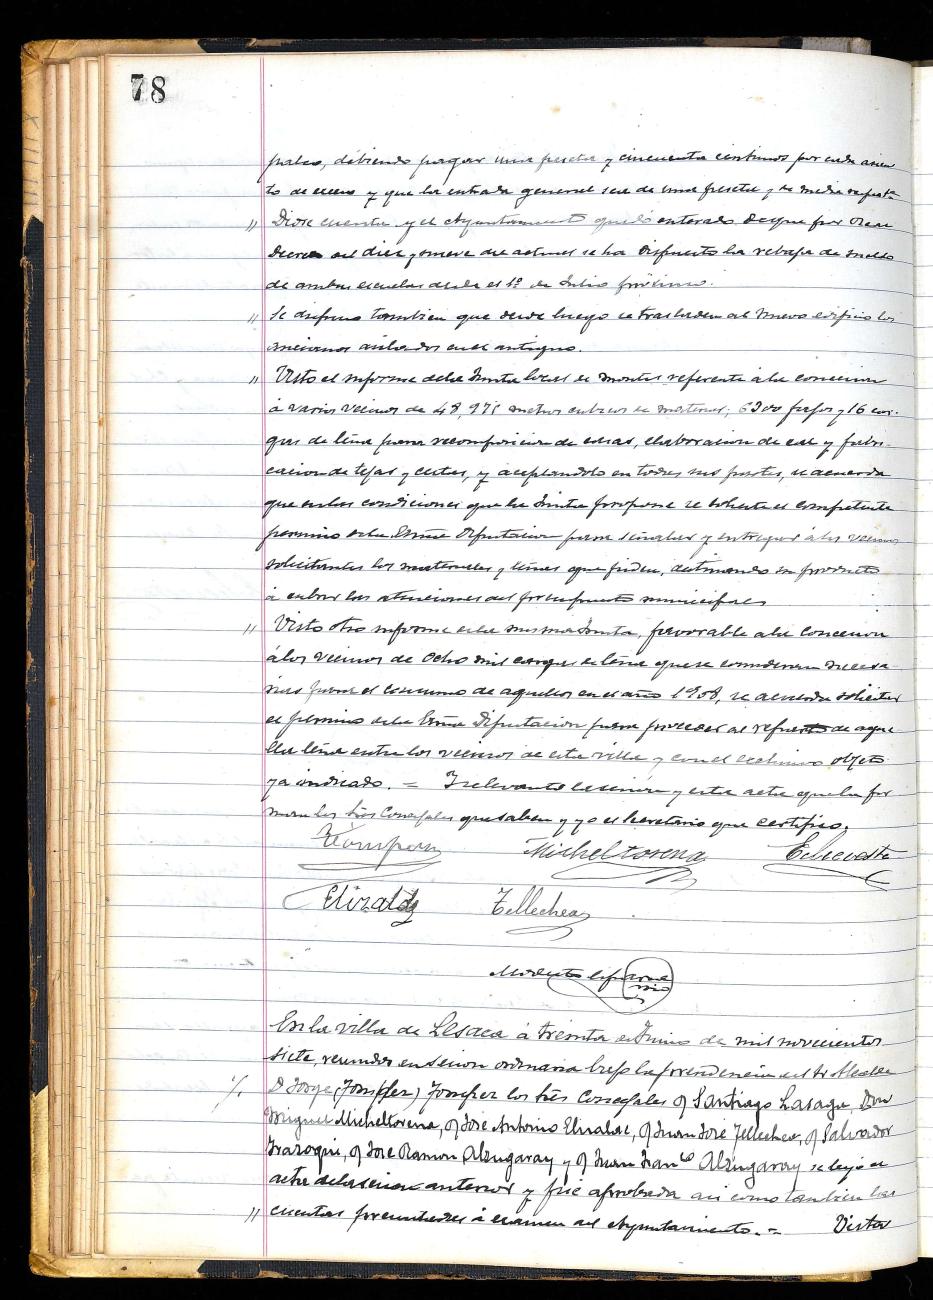 78
palco, debiendo pagar una peseta y cincuenta centimos por cada asien
to de estos y que la entrada general sea de una peseta y de media
" Diose cuenta y el Ayuntamiento quedó enterado de que por Real
Decreto del diez y nueve del actual se ha dispuesto la rebaja de sueldo
de ambas escuelas desde el 1º de Julio próximo.
" Se dispuso tambien que desde luego se trasladen al nuevo edificio los
ancianos asilados en el antiguo.
" Visto el informe de la Junta local de montes referente á la concesion
á varios vecinos de 48,971 metros cubicos de materiales, 6300 y 16 car-
gas de leña para recomposicion de casas, elaboracion de cal y fabri-
cacion de tejas y, y aceptandolo en todas sus partes, se acuerda
que en las condiciones que la Junta propone se solicite el competente
permiso de la Excma Diputacion para señalar y entregar á los vecinos
solicitantes los materiales y leñas que piden, destinando su producto
á cubrir las atenciones del presupuesto municipal.
" Visto otro informe de la misma Junta, favorable á la concesion
á los vecinos de ocho mil cargas de leña que se consideran necesa-
rias para el consumo de aquellos en el año 1908, se acuerda solicitar
el permiso de la Excma Diputacion para proceder al reparto de aque-
lla leña entre los vecinos de esta villa y con el exclusivo objeto
ya indicado. = Y se levantó la sesion y esta acta que la fir
man los Sres Concejales que saben y yo el Secretario que certifico.
Micheltorena Echeveste
Elizalde Tellechea
Modesto
En la villa de Lesaca á treinta de Junio de mil novecientos
siete, reunidos en sesion ordinaria bajo la presidencia del Sr Alcalde
D Jorge los Sres Concejales D Santiago Lasaga, Don
Miguel Micheltorena, D José Antonio Elizalde, D Juan José Tellechea, D Salvador
Irazoqui, D José Ramon Alzugaray y D Juan Franco Alzugaray se leyó el
acta de la sesion anterior y fué aprobada asi como tambien las
" cuentas presentadas á examen del Ayuntamiento. = Vista